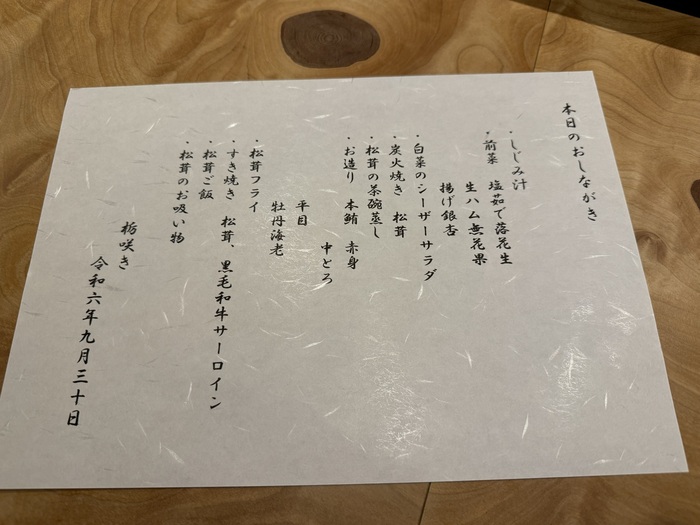 本日のおしながき
・しじみ汁
・前菜 塩茹で落花生
生ハム無花果
揚げ銀杏
・白菜のシーザーサラダ
・炭火焼き 松茸
・松茸の茶碗蒸し
・お造り 本鮪 赤身
中とろ
平目
牡丹海老
・松茸フライ
・すき焼き 松茸、黒毛和牛サーロイン
・松茸ご飯
・松茸のお吸い物
栃咲き
令和六年九月三十日